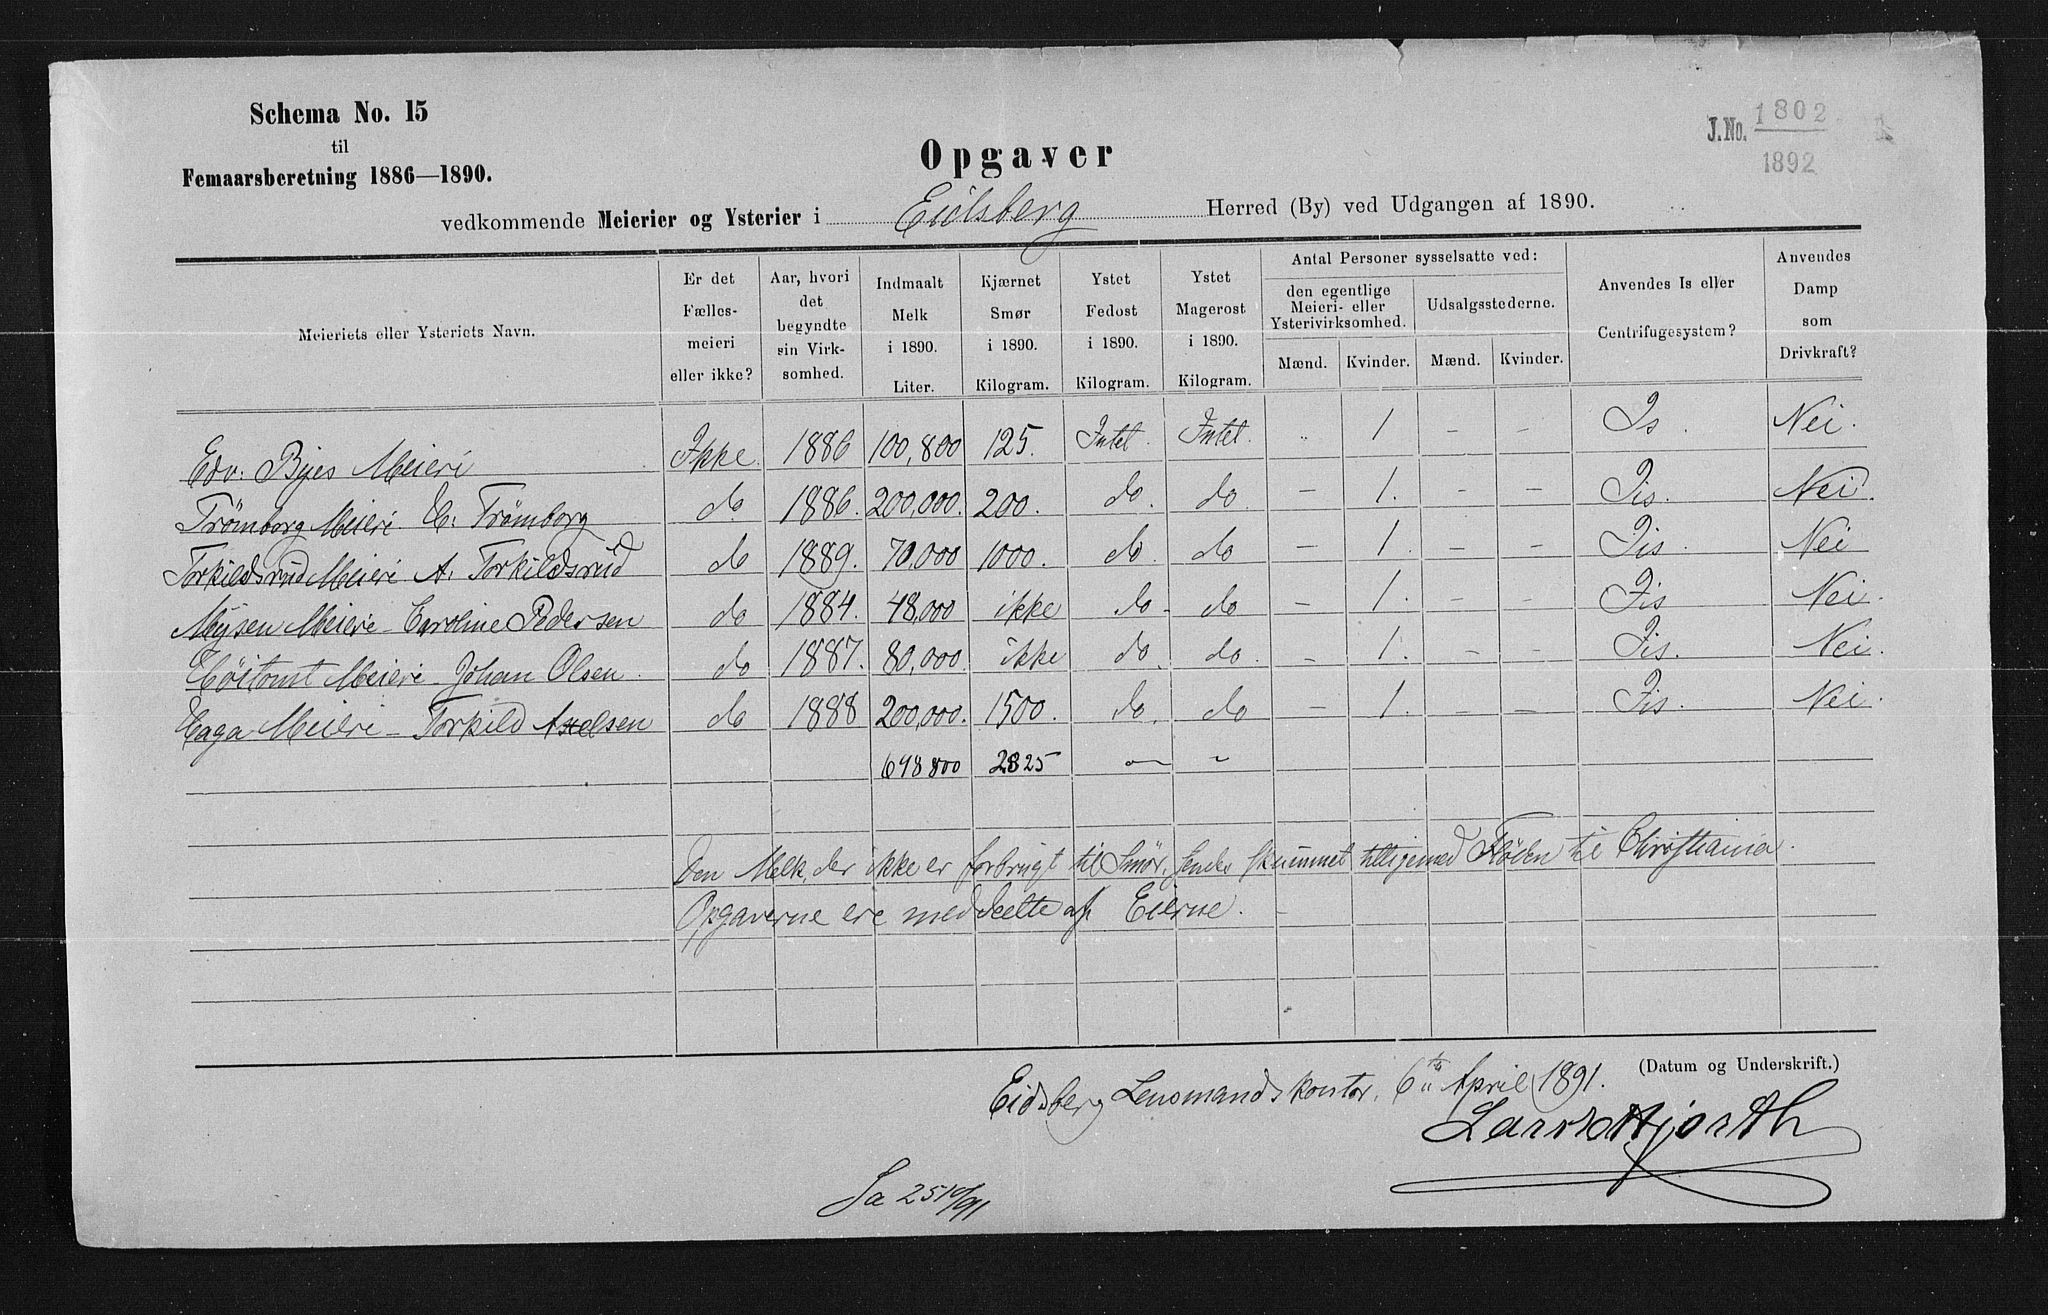 Schema No. 15
til
Femaarsberetning 1886—1890.
J. No. 1802
1892
Opgaver
vedkommende Meierier og Ysterier i Eidsberg Herred (By) ved Udgangen af 1890.
Meieriets eller Ysteriets Navn. | Er det Fælles-meieri eller ikke? | Aar, hvori det begyndte sin Virk-somhed. | Indmaalt Melk i 1890. Liter. | Kjærnet Smør i 1890. Kilogram. | Ystet Fedost i 1890. Kilogram. | Ystet Magerost i 1890. Kilogram. | Antal Personer sysselsatte ved: den egentlige Meieri- eller Ysterivirksomhed. Mænd. Kvinder. | Udsalgsstederne. Mænd. Kvinder. | Anvendes Is eller Centrifugesystem? | Anvendes Damp som Drivkraft?
Edv. Byes Meieri | Ikke | 1886 | 100,800 | 125. | Intet. | Intet. | „ | 1 | – | – | Is. | Nei.
Trømborg Meieri C. Trømborg | do | 1886. | 200,000. | 200. | do. | do. | – | 1. | – | – | Iis. | Nei.
Torkildsrud Meieri A. Torkildsrud | do | 1889. | 70,000 | 1000. | do. | do | – | 1. | – | – | Iis. | Nei
Mysen Meieri – Caroline Pedersen | do | 1884. | 48,000 | ikke | do. | do | – | 1. | – | – | Iis | Nei.
Høitomt Meieri – Johan Olsen. | do | 1887. | 80,000. | ikke | do. | do. | – | 1. | – | – | Iis. | Nei.
Haga Meieri – Torkild Axelsen | do | 1888 | 200,000. | 1500. | do. | do | – | 1. | – | – | Iis. | Nei.
698 800 | 2825 | – | –
Den Melk, der ikke er forbrugt til Smør, sendes skummet tilligemed Fløden til Christiania.
Opgaverne ere meddeelte af Eierne.
(Datum og Underskrift.)
Eidsberg Lensmandskontor, 6te April 1891.
Lars Hjorth
Sa 25 10/91